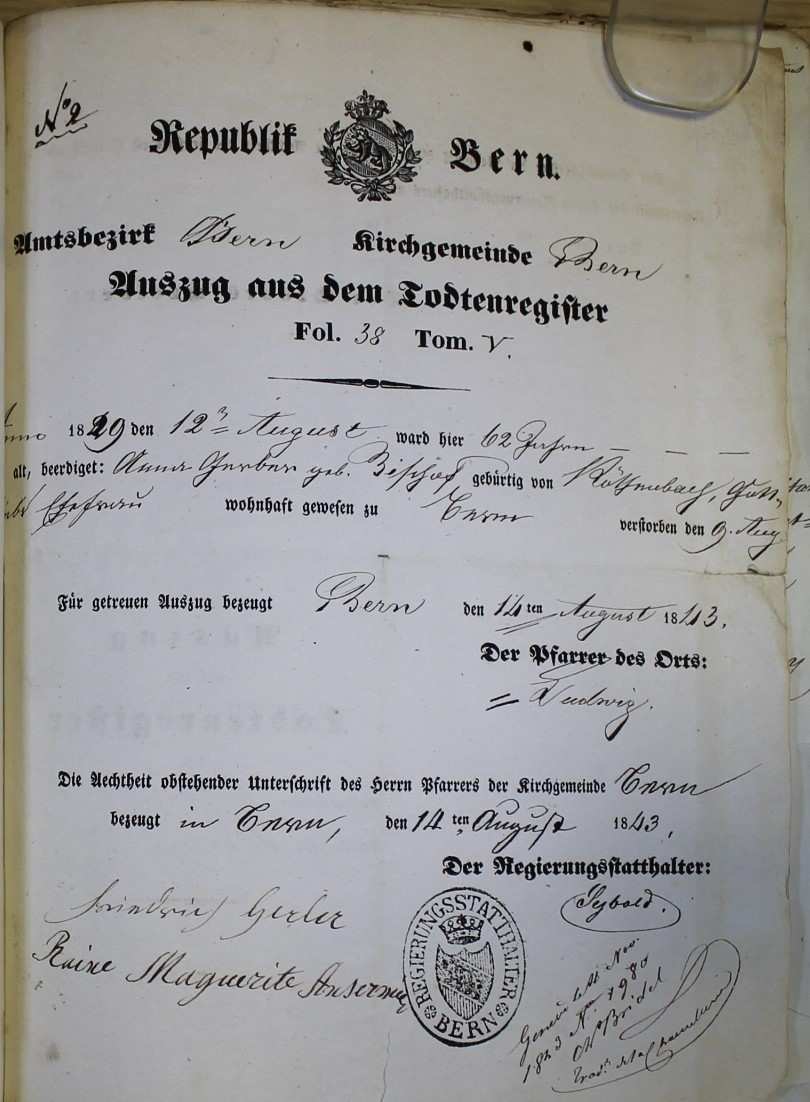 No 2
Republik Bern.
Amtsbezirk Bern Kirchgemeinde Bern
Auszug aus dem Todtenregister
Fol. 38 Tom. V.
1829 den 12 August ward hier 62 Jahre — — —
alt, beerdiget: Anna Gerber geb. Bischof gebürtig von Röthenbach, Gott,
Ehefrau wohnhaft gewesen zu Bern verstorben den 9. Aug
Für getreuen Auszug bezeugt Bern den 14ten August 1843.
Der Pfarrer des Orts:
Ludwig.
Die Aechtheit obstehender Unterschrift des Herrn Pfarrers der Kirchgemeinde Bern
bezeugt in Bern, den 14ten August 1843,
Der Regierungsstatthalter:
Friedrich Gerber
Raine Maguerite
REGIERUNGSSTATTHALTER
BERN
1843 No 1980
Bridel